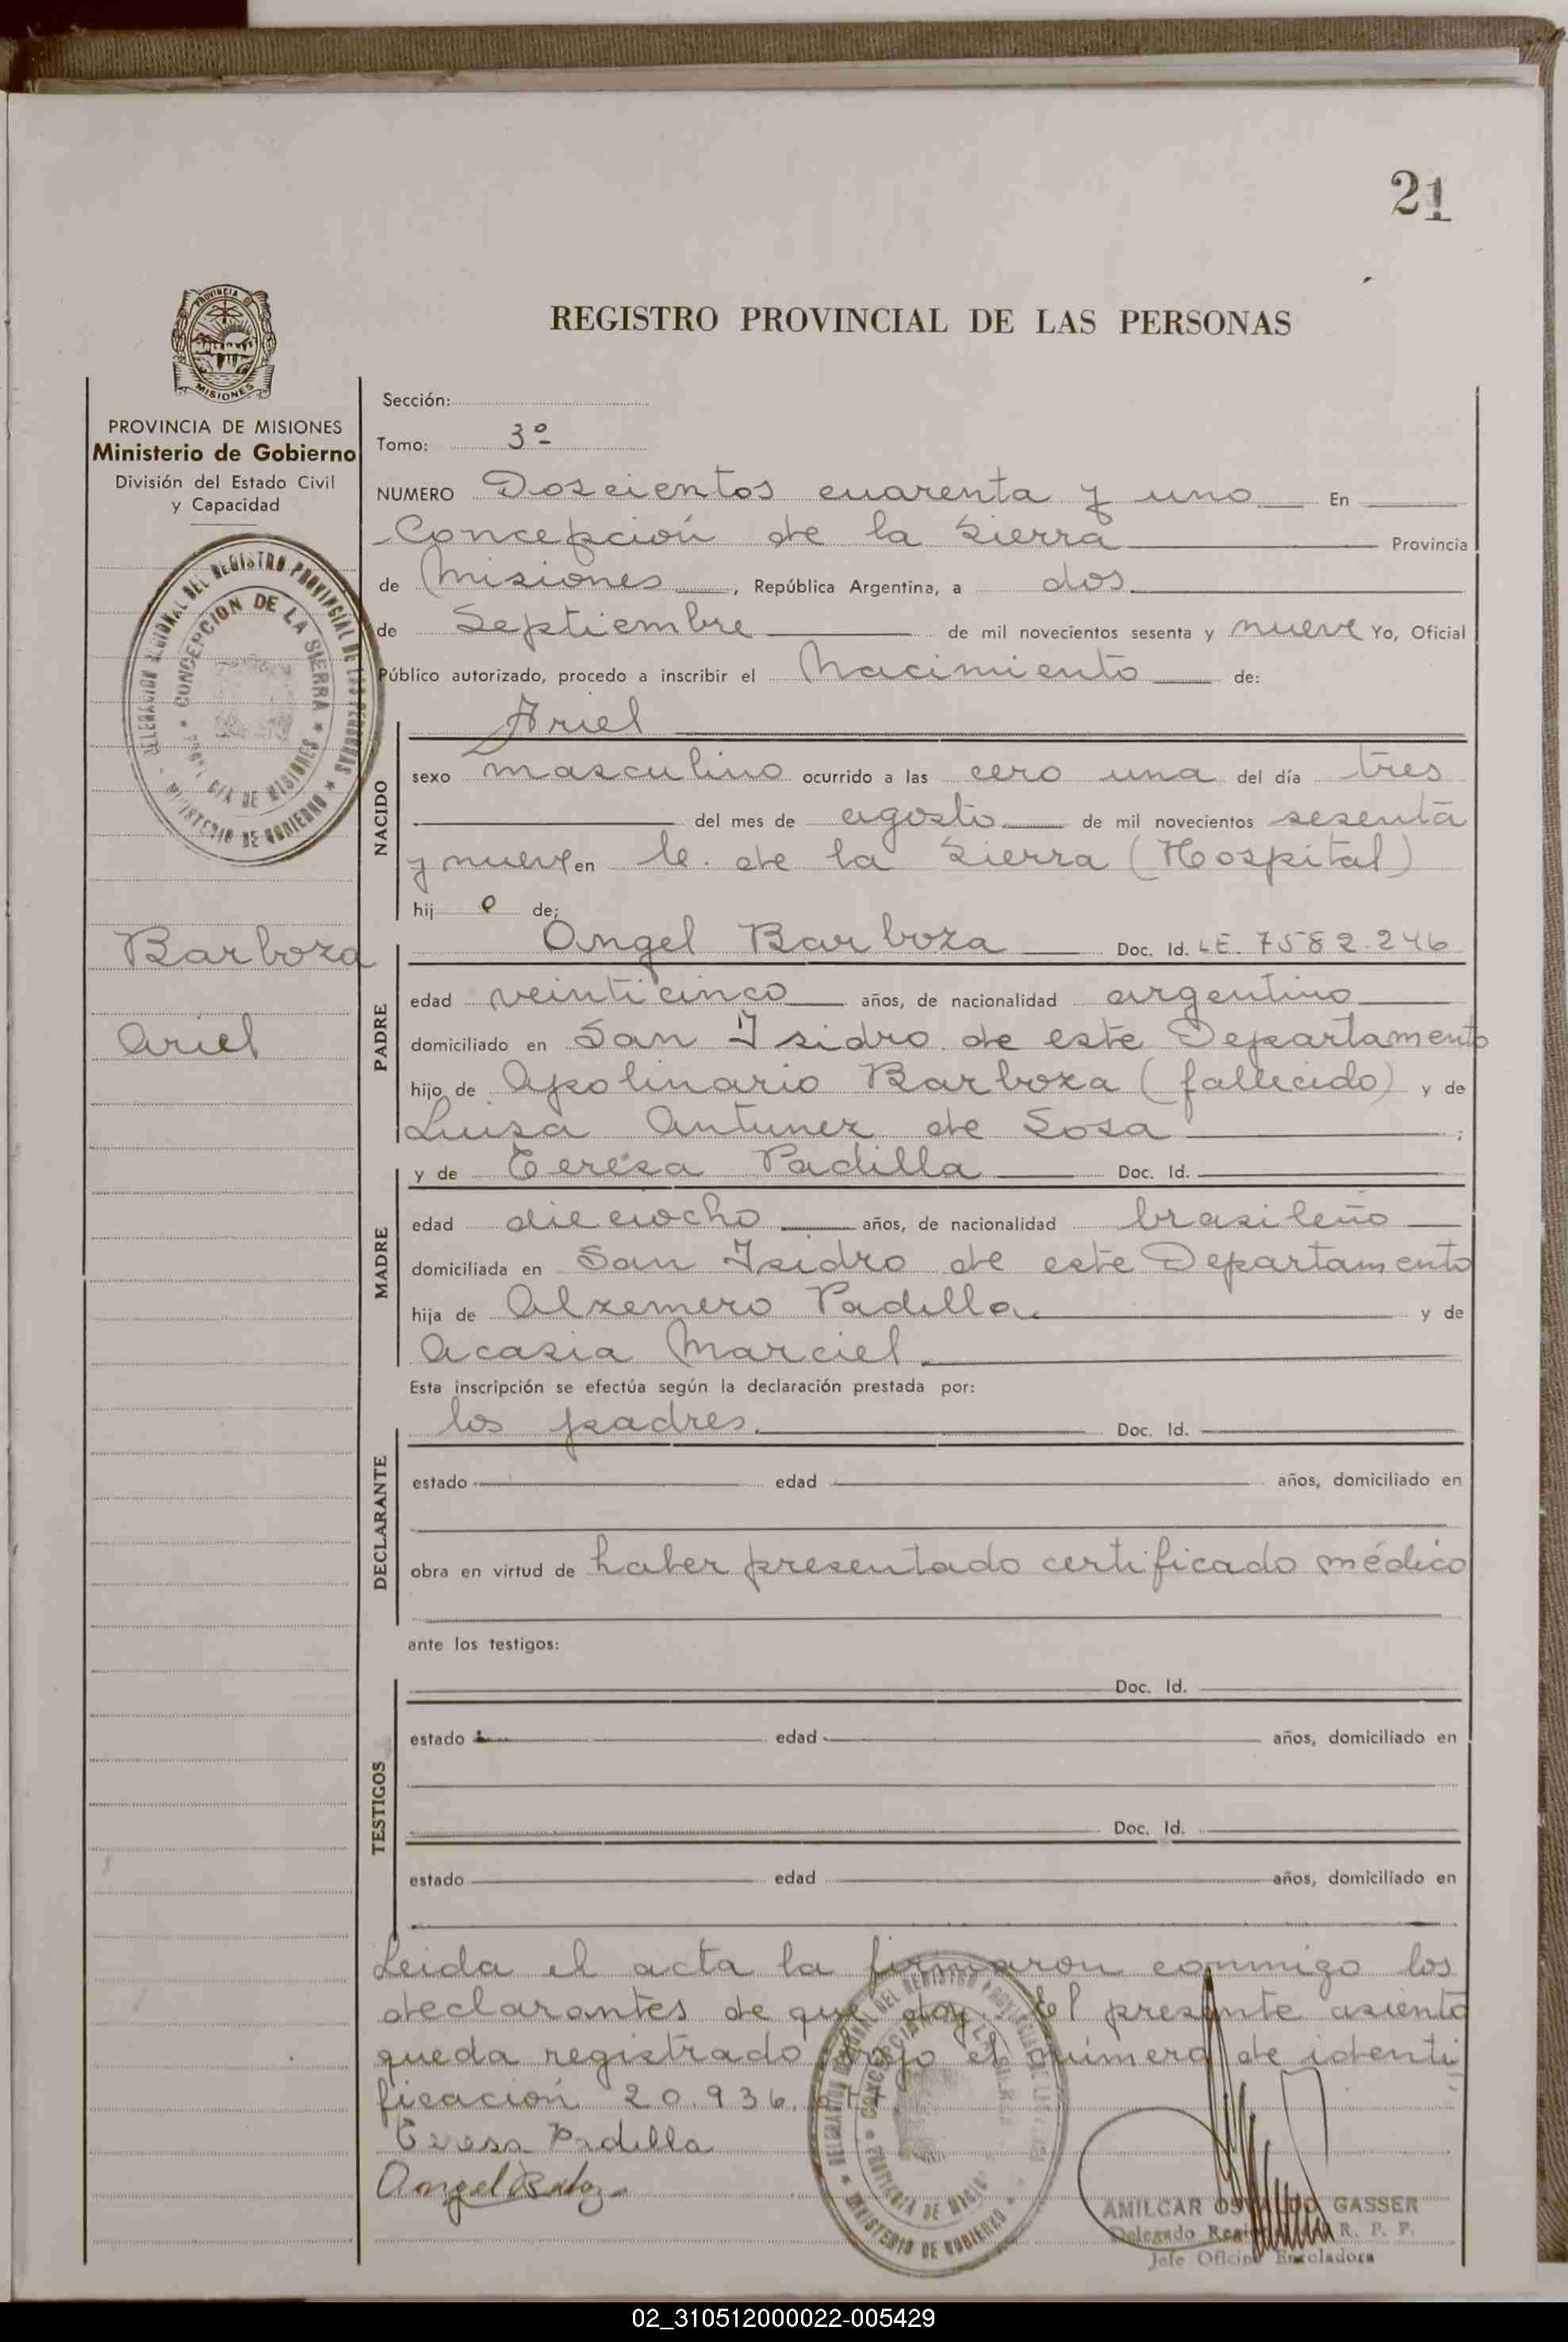 21
PROVINCIA DE
MISIONES
REGISTRO PROVINCIAL DE LAS PERSONAS
PROVINCIA DE MISIONES
Ministerio de Gobierno
División del Estado Civil
y Capacidad
DELEGACION REGIONAL DEL REGISTRO PROVINCIAL DE LAS PERSONAS
CONCEPCION DE LA SIERRA
PROVINCIA DE MISIONES
MINISTERIO DE GOBIERNO
Barboza
Ariel
Sección:
Tomo: 3º
NUMERO Doscientos cuarenta y uno En
Concepción de la Sierra Provincia
de Misiones, República Argentina, a dos
de Septiembre de mil novecientos sesenta y nueve Yo, Oficial
Público autorizado, procedo a inscribir el Nacimiento de:
Ariel
NACIDO
sexo masculino ocurrido a las cero una del día tres
del mes de agosto de mil novecientos sesenta
y nueve en C. de la Sierra (Hospital)
hij o de:
PADRE
Angel Barboza Doc. Id. LE. 7582.246
edad veinticinco años, de nacionalidad argentino
domiciliado en San Isidro de este Departamento
hijo de Apolinario Barboza (fallecido) y de
Luisa Antunez de Sosa ;
MADRE
y de Teresa Padilla Doc. Id.
edad dieciocho años, de nacionalidad brasileño
domiciliada en San Isidro de este Departamento
hija de Alzemero Padilla y de
Acasia Marciel
Esta inscripción se efectúa según la declaración prestada por:
DECLARANTE
los padres. Doc. Id.
estado edad años, domiciliado en
obra en virtud de haber presentado certificado médico
ante los testigos:
TESTIGOS
Doc. Id.
estado edad años, domiciliado en
Doc. Id.
estado edad años, domiciliado en
Leida el acta la firmaron conmigo los
declarantes de que doy. El presente asiento
queda registrado bajo el número de identi
ficación 20.936.
Teresa Padilla
Angel Barboza
DELEGACION REGIONAL DEL REGISTRO PROVINCIAL DE LAS PERSONAS
CONCEPCION DE LA SIERRA
PROVINCIA DE MISIONES
MINISTERIO DE GOBIERNO
AMILCAR OSVALDO GASSER
Delegado Regional R. P. P.
Jefe Oficina Enroladora
02_310512000022-005429